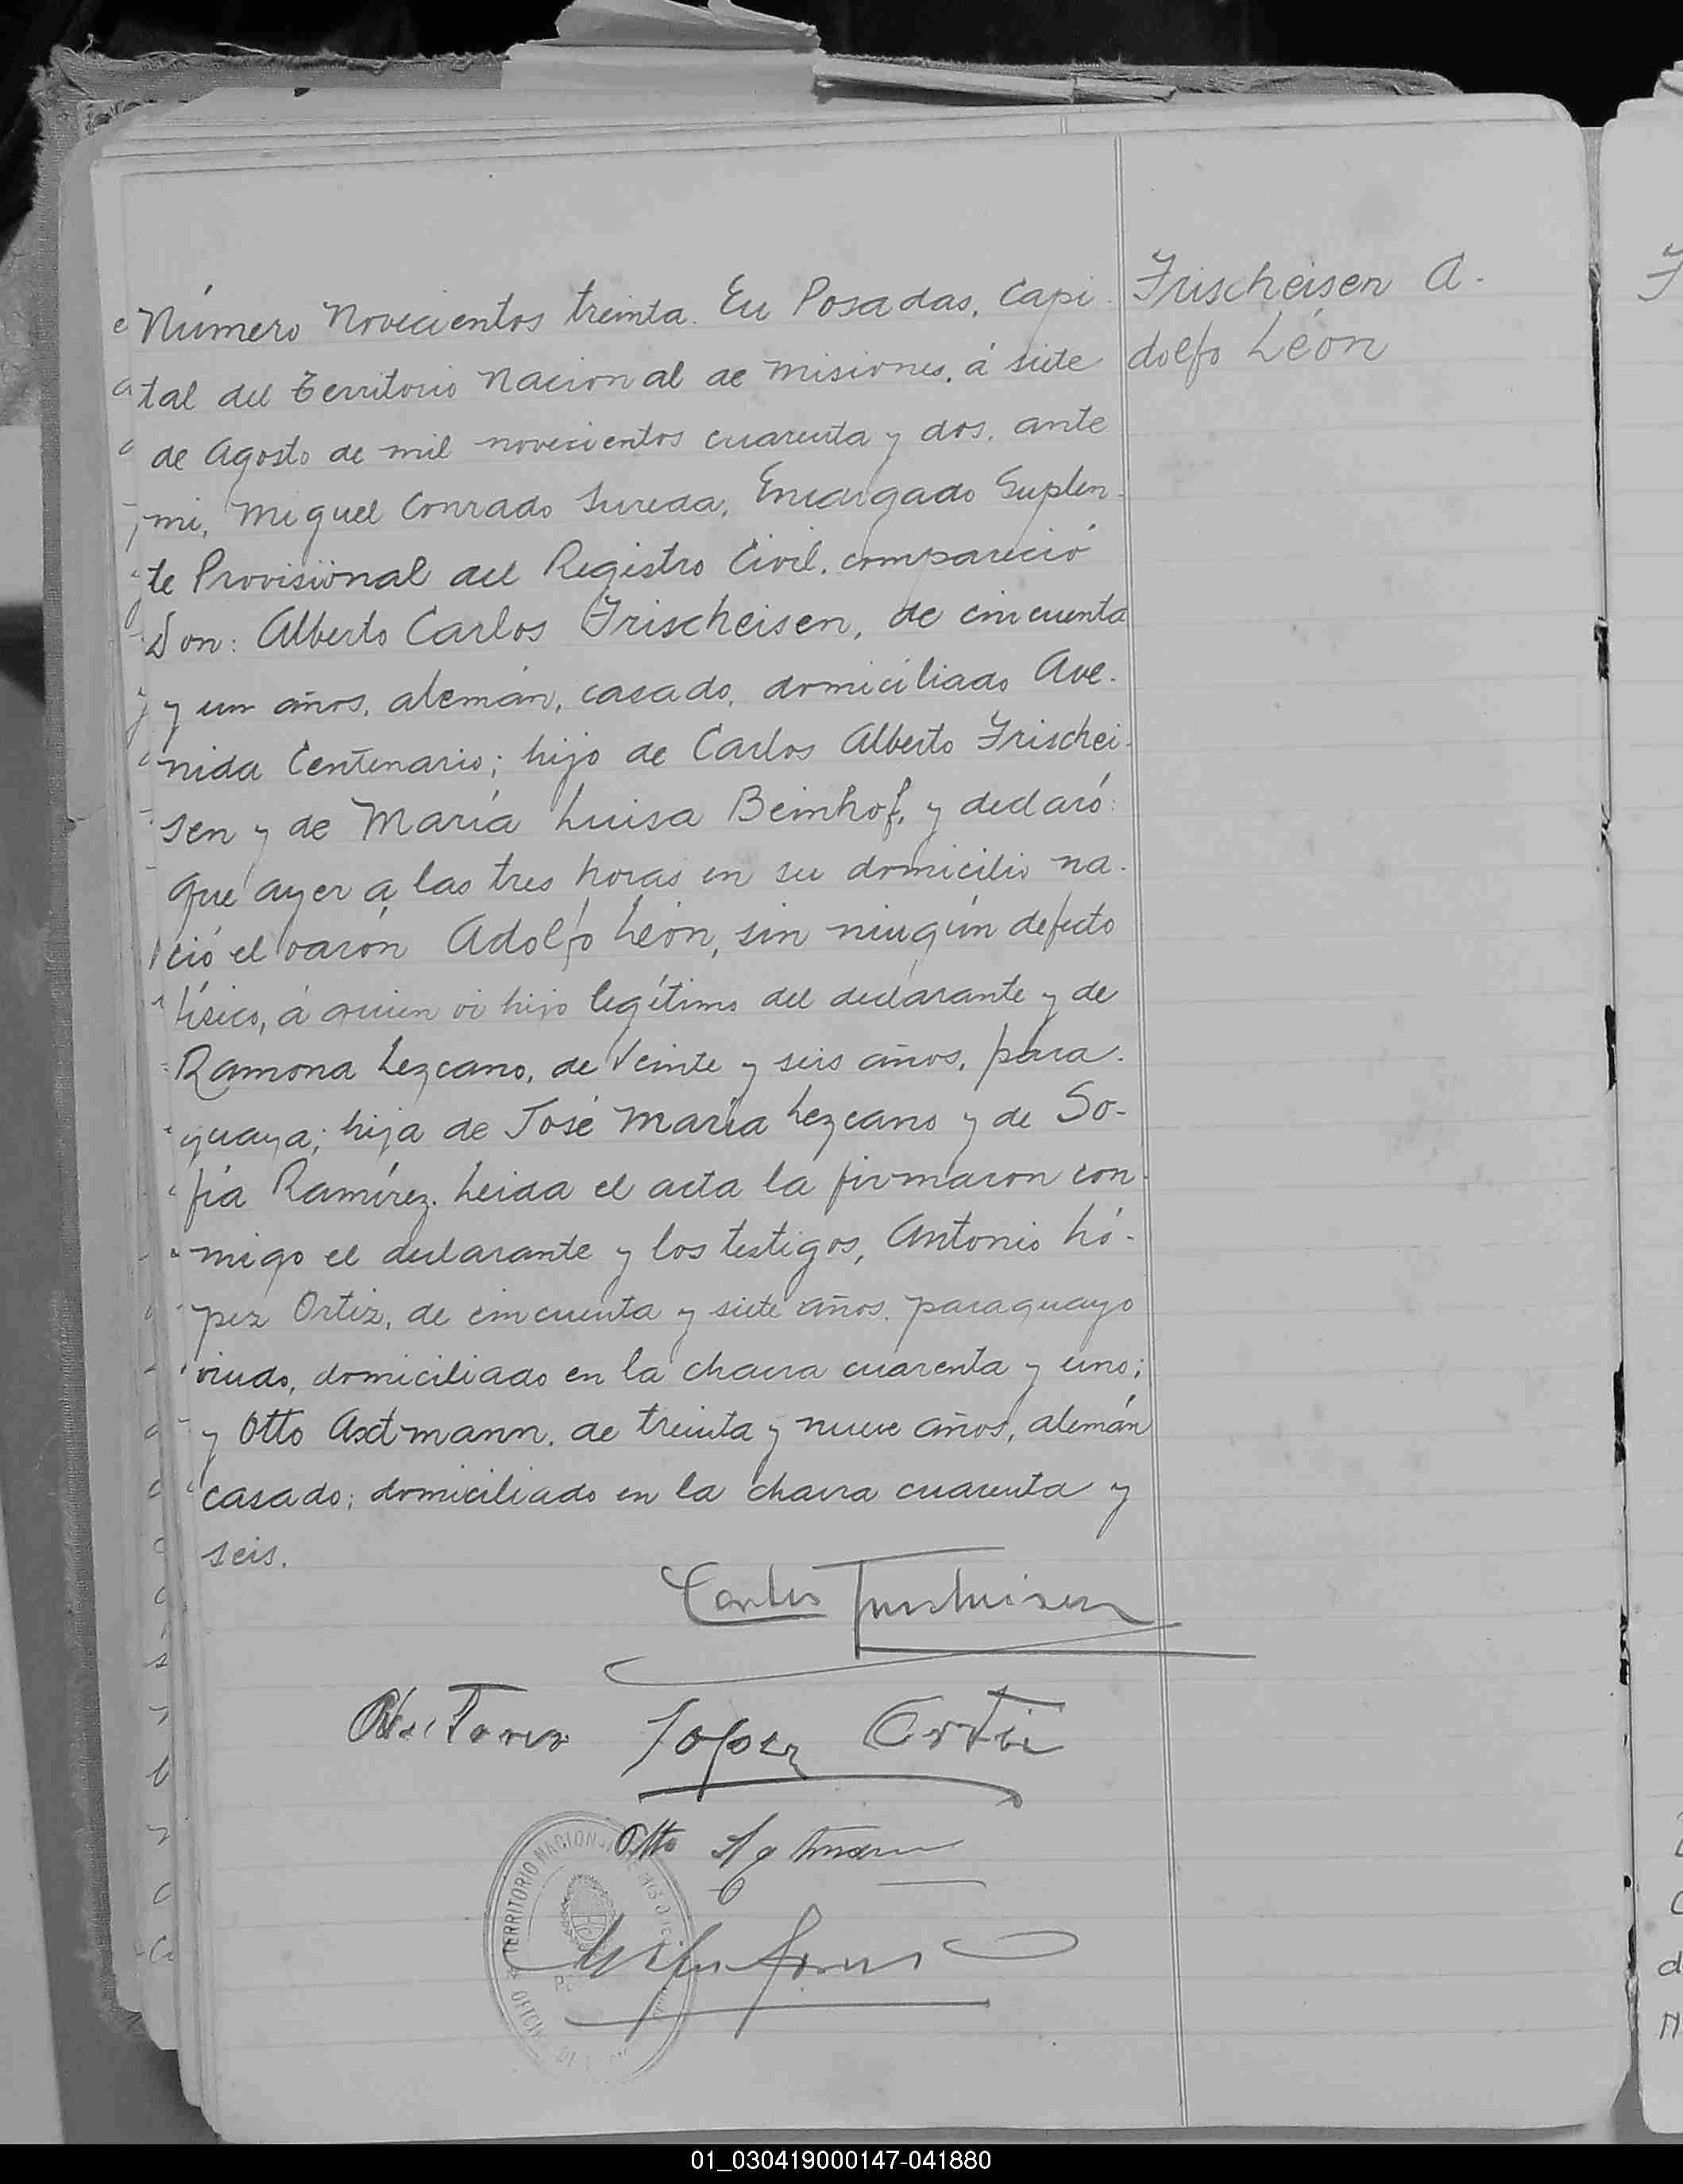 Número Novecientos treinta. En Posadas, Capi-
tal del Territorio Nacional de Misiones, á siete
de Agosto de mil novecientos cuarenta y dos, ante
mi, Miguel Conrado Sureda, Encargado Suplen-
te Provisional del Registro Civil, compareció
Don: Alberto Carlos Frischeisen, de cincuenta
y un años, alemán, casado, domiciliado Ave-
nida Centenario; hijo de Carlos Alberto Frischei-
sen y de María Luisa Beinhof, y declaró:
Que ayer a las tres horas en su domicilio na-
ció el varón Adolfo León, sin ningún defecto
físico, á quien vi hijo legítimo del declarante y de
Ramona Lezcano, de veinte y seis años, para-
guaya; hija de José María Lezcano y de So-
fía Ramírez. Leida el acta la firmaron con-
migo el declarante y los testigos, Antonio Ló-
pez Ortiz, de cincuenta y siete años, paraguayo
viudo, domiciliado en la chacra cuarenta y uno;
y Otto Axtmann, de treinta y nueve años, alemán
casado; domiciliado en la chacra cuarenta y
seis.
Frischeisen A-
dolfo León
Carlos Frischeisen
Lopez Ortiz
Otto
TERRITORIO NACIONAL
01_030419000147-041880